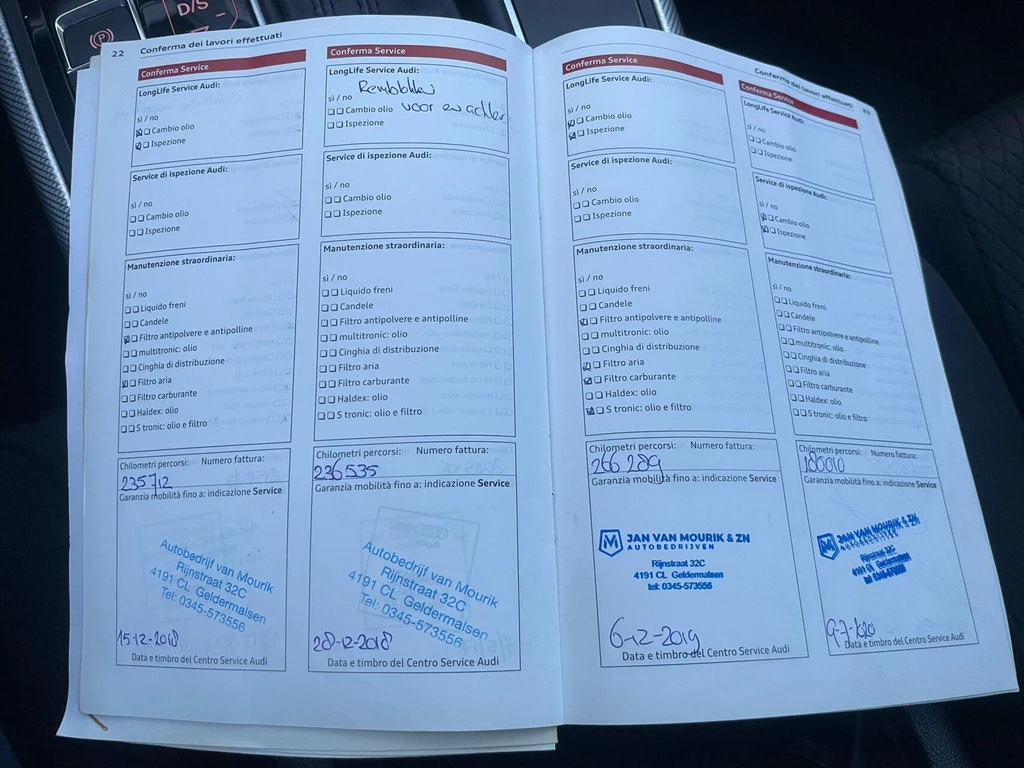 D/S
22 Conferma dei lavori effettuati
Conferma Service
LongLife Service Audi:
sì / no
Cambio olio
Ispezione
Service di ispezione Audi:
sì / no
Cambio olio
Ispezione
Manutenzione straordinaria:
sì / no
Liquido freni
Candele
Filtro antipolvere e antipolline
multitronic: olio
Cinghia di distribuzione
Filtro aria
Filtro carburante
Haldex: olio
S tronic: olio e filtro
Chilometri percorsi: Numero fattura:
235712
Garanzia mobilità fino a: indicazione Service
Autobedrijf van Mourik
Rijnstraat 32C
4191 CL Geldermalsen
Tel: 0345-573556
15-12-2018
Data e timbro del Centro Service Audi
Conferma Service
LongLife Service Audi:
Remblokken
sì / no
Cambio olio voor en achter
Ispezione
Service di ispezione Audi:
sì / no
Cambio olio
Ispezione
Manutenzione straordinaria:
sì / no
Liquido freni
Candele
Filtro antipolvere e antipolline
multitronic: olio
Cinghia di distribuzione
Filtro aria
Filtro carburante
Haldex: olio
S tronic: olio e filtro
Chilometri percorsi: Numero fattura:
236535
Garanzia mobilità fino a: indicazione Service
Autobedrijf van Mourik
Rijnstraat 32C
4191 CL Geldermalsen
Tel: 0345-573556
28-12-2018
Data e timbro del Centro Service Audi
Conferma Service
LongLife Service Audi:
sì / no
Cambio olio
Ispezione
Service di ispezione Audi:
sì / no
Cambio olio
Ispezione
Manutenzione straordinaria:
sì / no
Liquido freni
Candele
Filtro antipolvere e antipolline
multitronic: olio
Cinghia di distribuzione
Filtro aria
Filtro carburante
Haldex: olio
S tronic: olio e filtro
Chilometri percorsi: Numero fattura:
266289
Garanzia mobilità fino a: indicazione Service
JAN VAN MOURIK & ZN
AUTOBEDRIJVEN
Rijnstraat 32C
4191 CL Geldermalsen
tel: 0345-573556
6-12-2019
Data e timbro del Centro Service Audi
Conferma dei lavori effettuati 23
Conferma Service
LongLife Service Audi:
sì / no
Cambio olio
Ispezione
Service di ispezione Audi:
sì / no
Cambio olio
Ispezione
Manutenzione straordinaria:
sì / no
Liquido freni
Candele
Filtro antipolvere e antipolline
multitronic: olio
Cinghia di distribuzione
Filtro aria
Filtro carburante
Haldex: olio
S tronic: olio e filtro
Chilometri percorsi: Numero fattura:
Garanzia mobilità fino a: indicazione Service
JAN VAN MOURIK & ZN
AUTOBEDRIJVEN
Rijnstraat 32C
4191 CL Geldermalsen
tel: 0345-573556
Data e timbro del Centro Service Audi